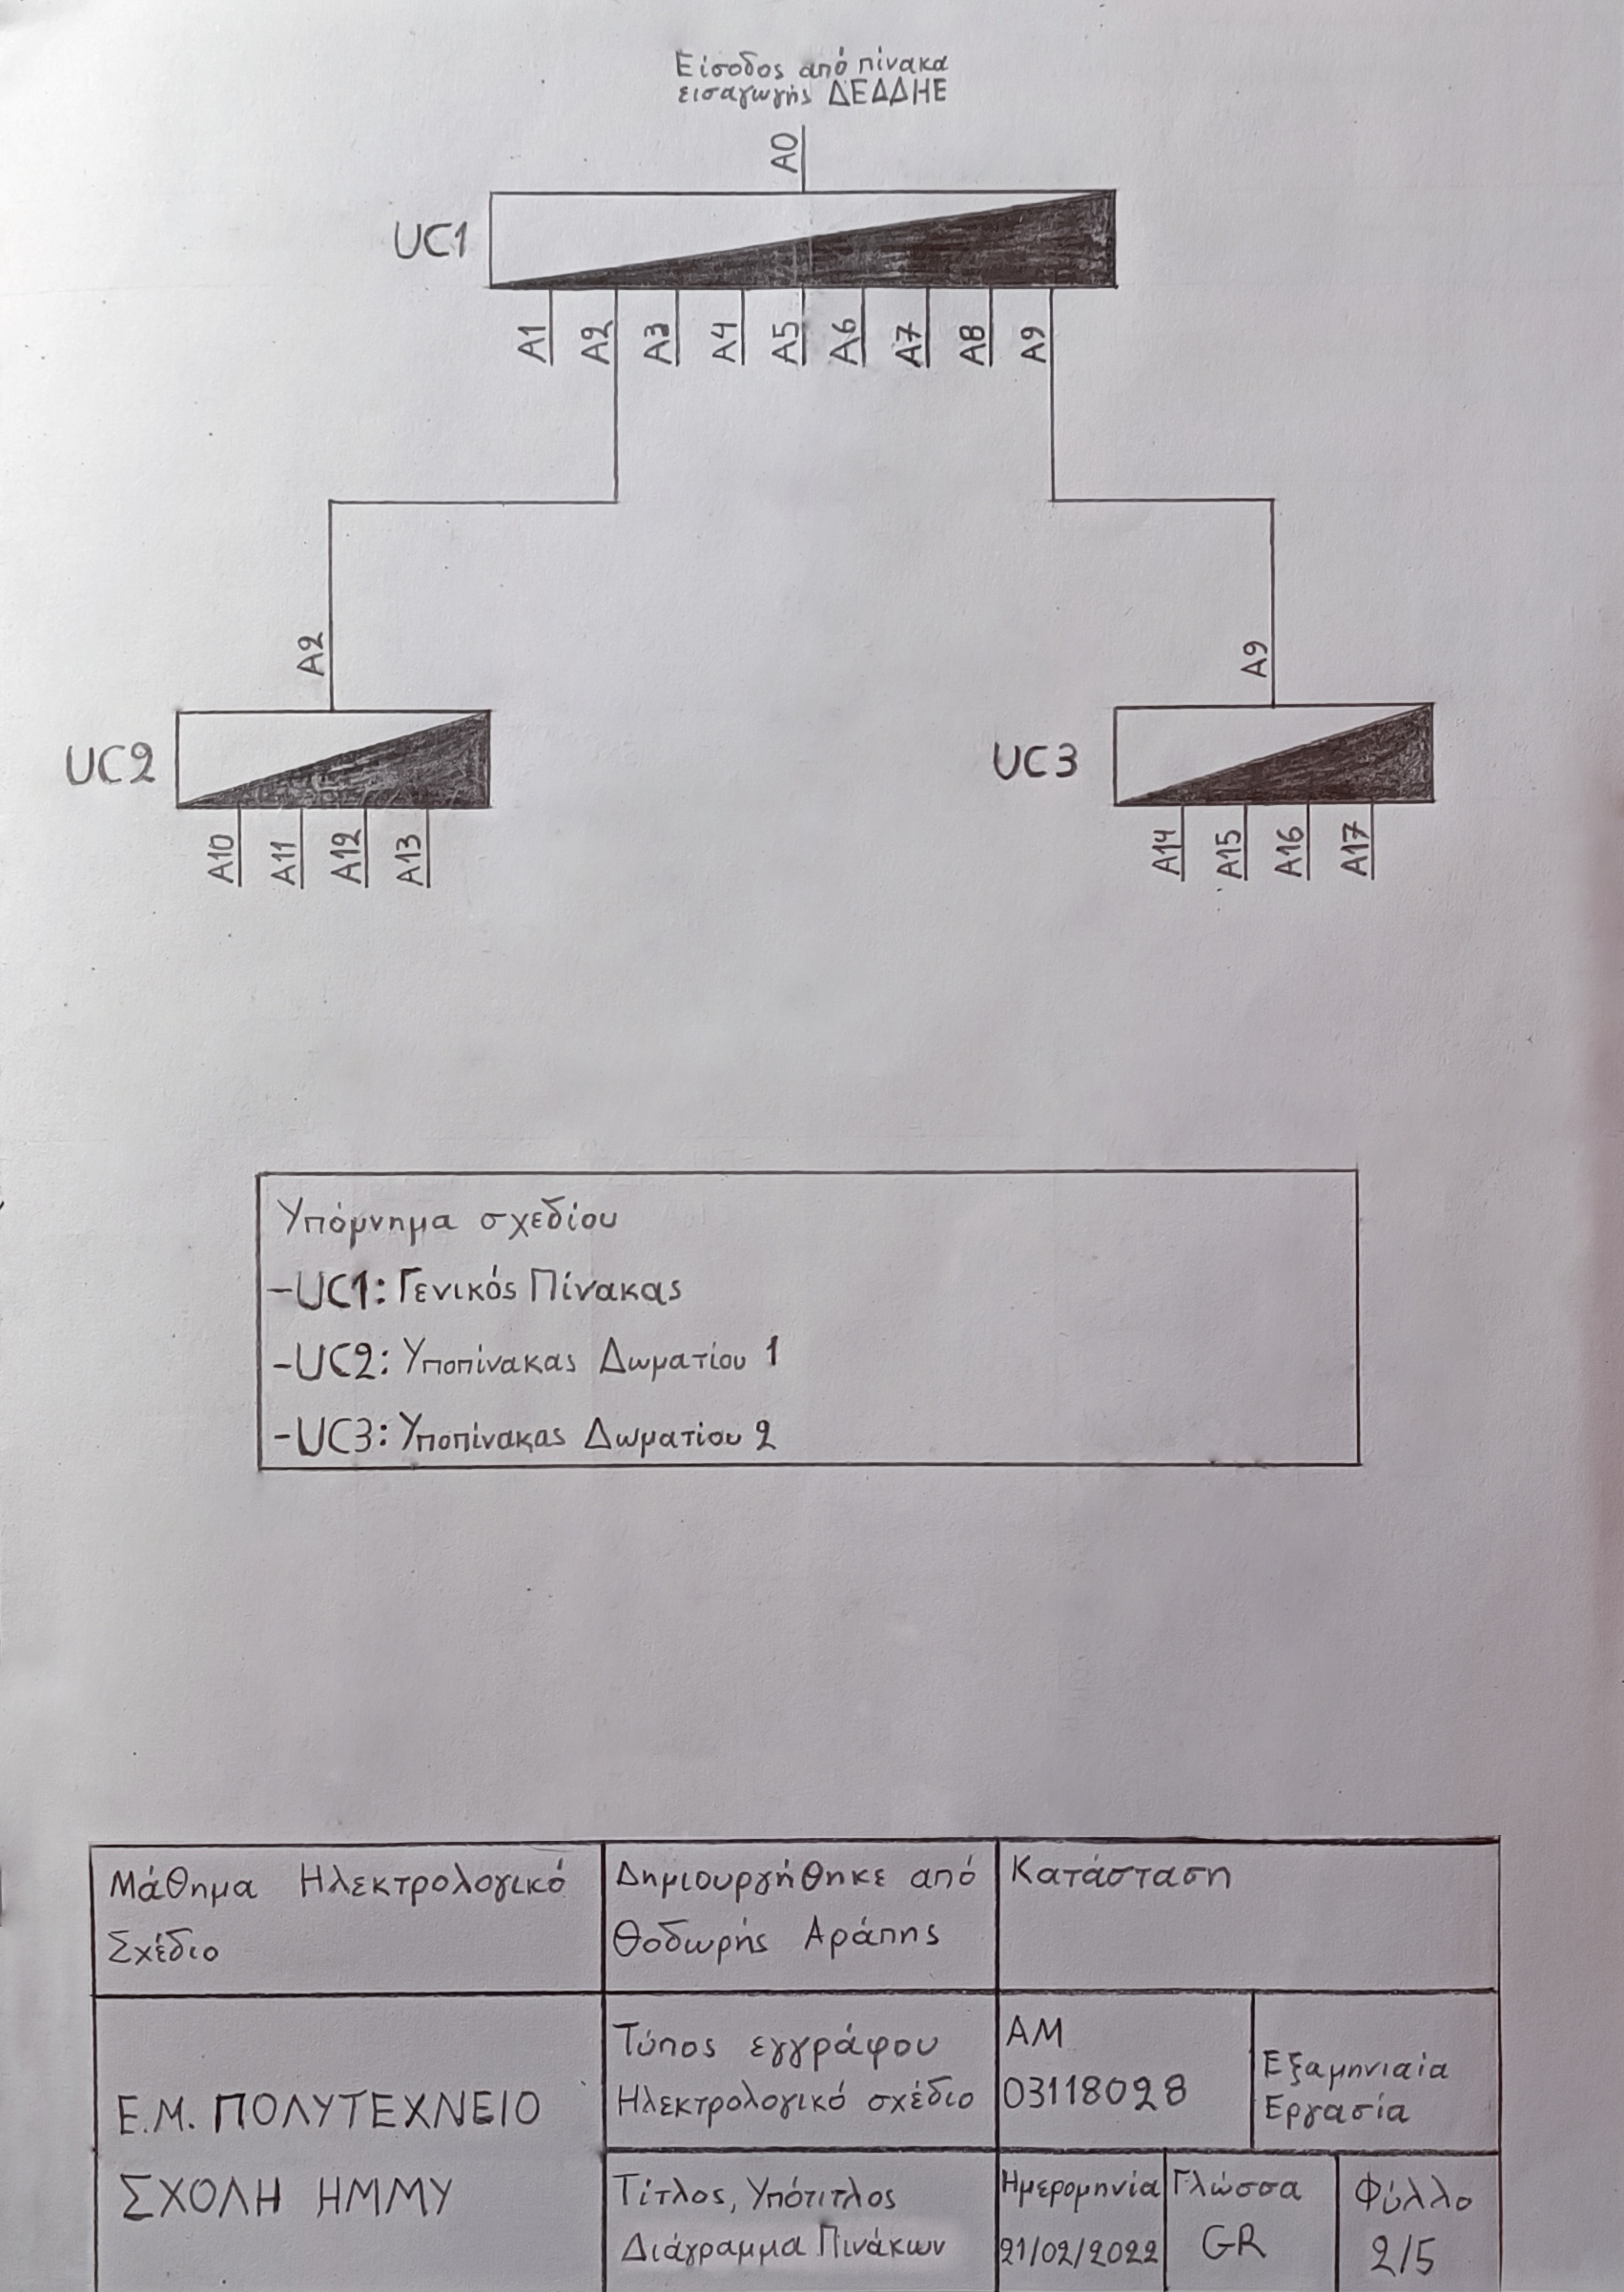 Είσοδος από πίνακα
εισαγωγής ΔΕΔΔΗΕ
A0
UC1
A1 A2 A3 A4 A5 A6 A7 A8 A9
A2
A9
UC2
UC3
A10 A11 A12 A13
A14 A15 A16 A17
Υπόμνημα σχεδίου
-UC1: Γενικός Πίνακας
-UC2: Υποπίνακας Δωματίου 1
-UC3: Υποπίνακας Δωματίου 2
Μάθημα Ηλεκτρολογικό
Σχέδιο
Δημιουργήθηκε από
Θοδωρής Αράπης
Κατάσταση
Ε.Μ. ΠΟΛΥΤΕΧΝΕΙΟ
ΣΧΟΛΗ ΗΜΜΥ
Τύπος εγγράφου
Ηλεκτρολογικό σχέδιο
ΑΜ
03118028
Εξαμηνιαία
Εργασία
Τίτλος, Υπότιτλος
Διάγραμμα Πινάκων
Ημερομηνία
21/02/2022
Γλώσσα
GR
Φύλλο
2/5